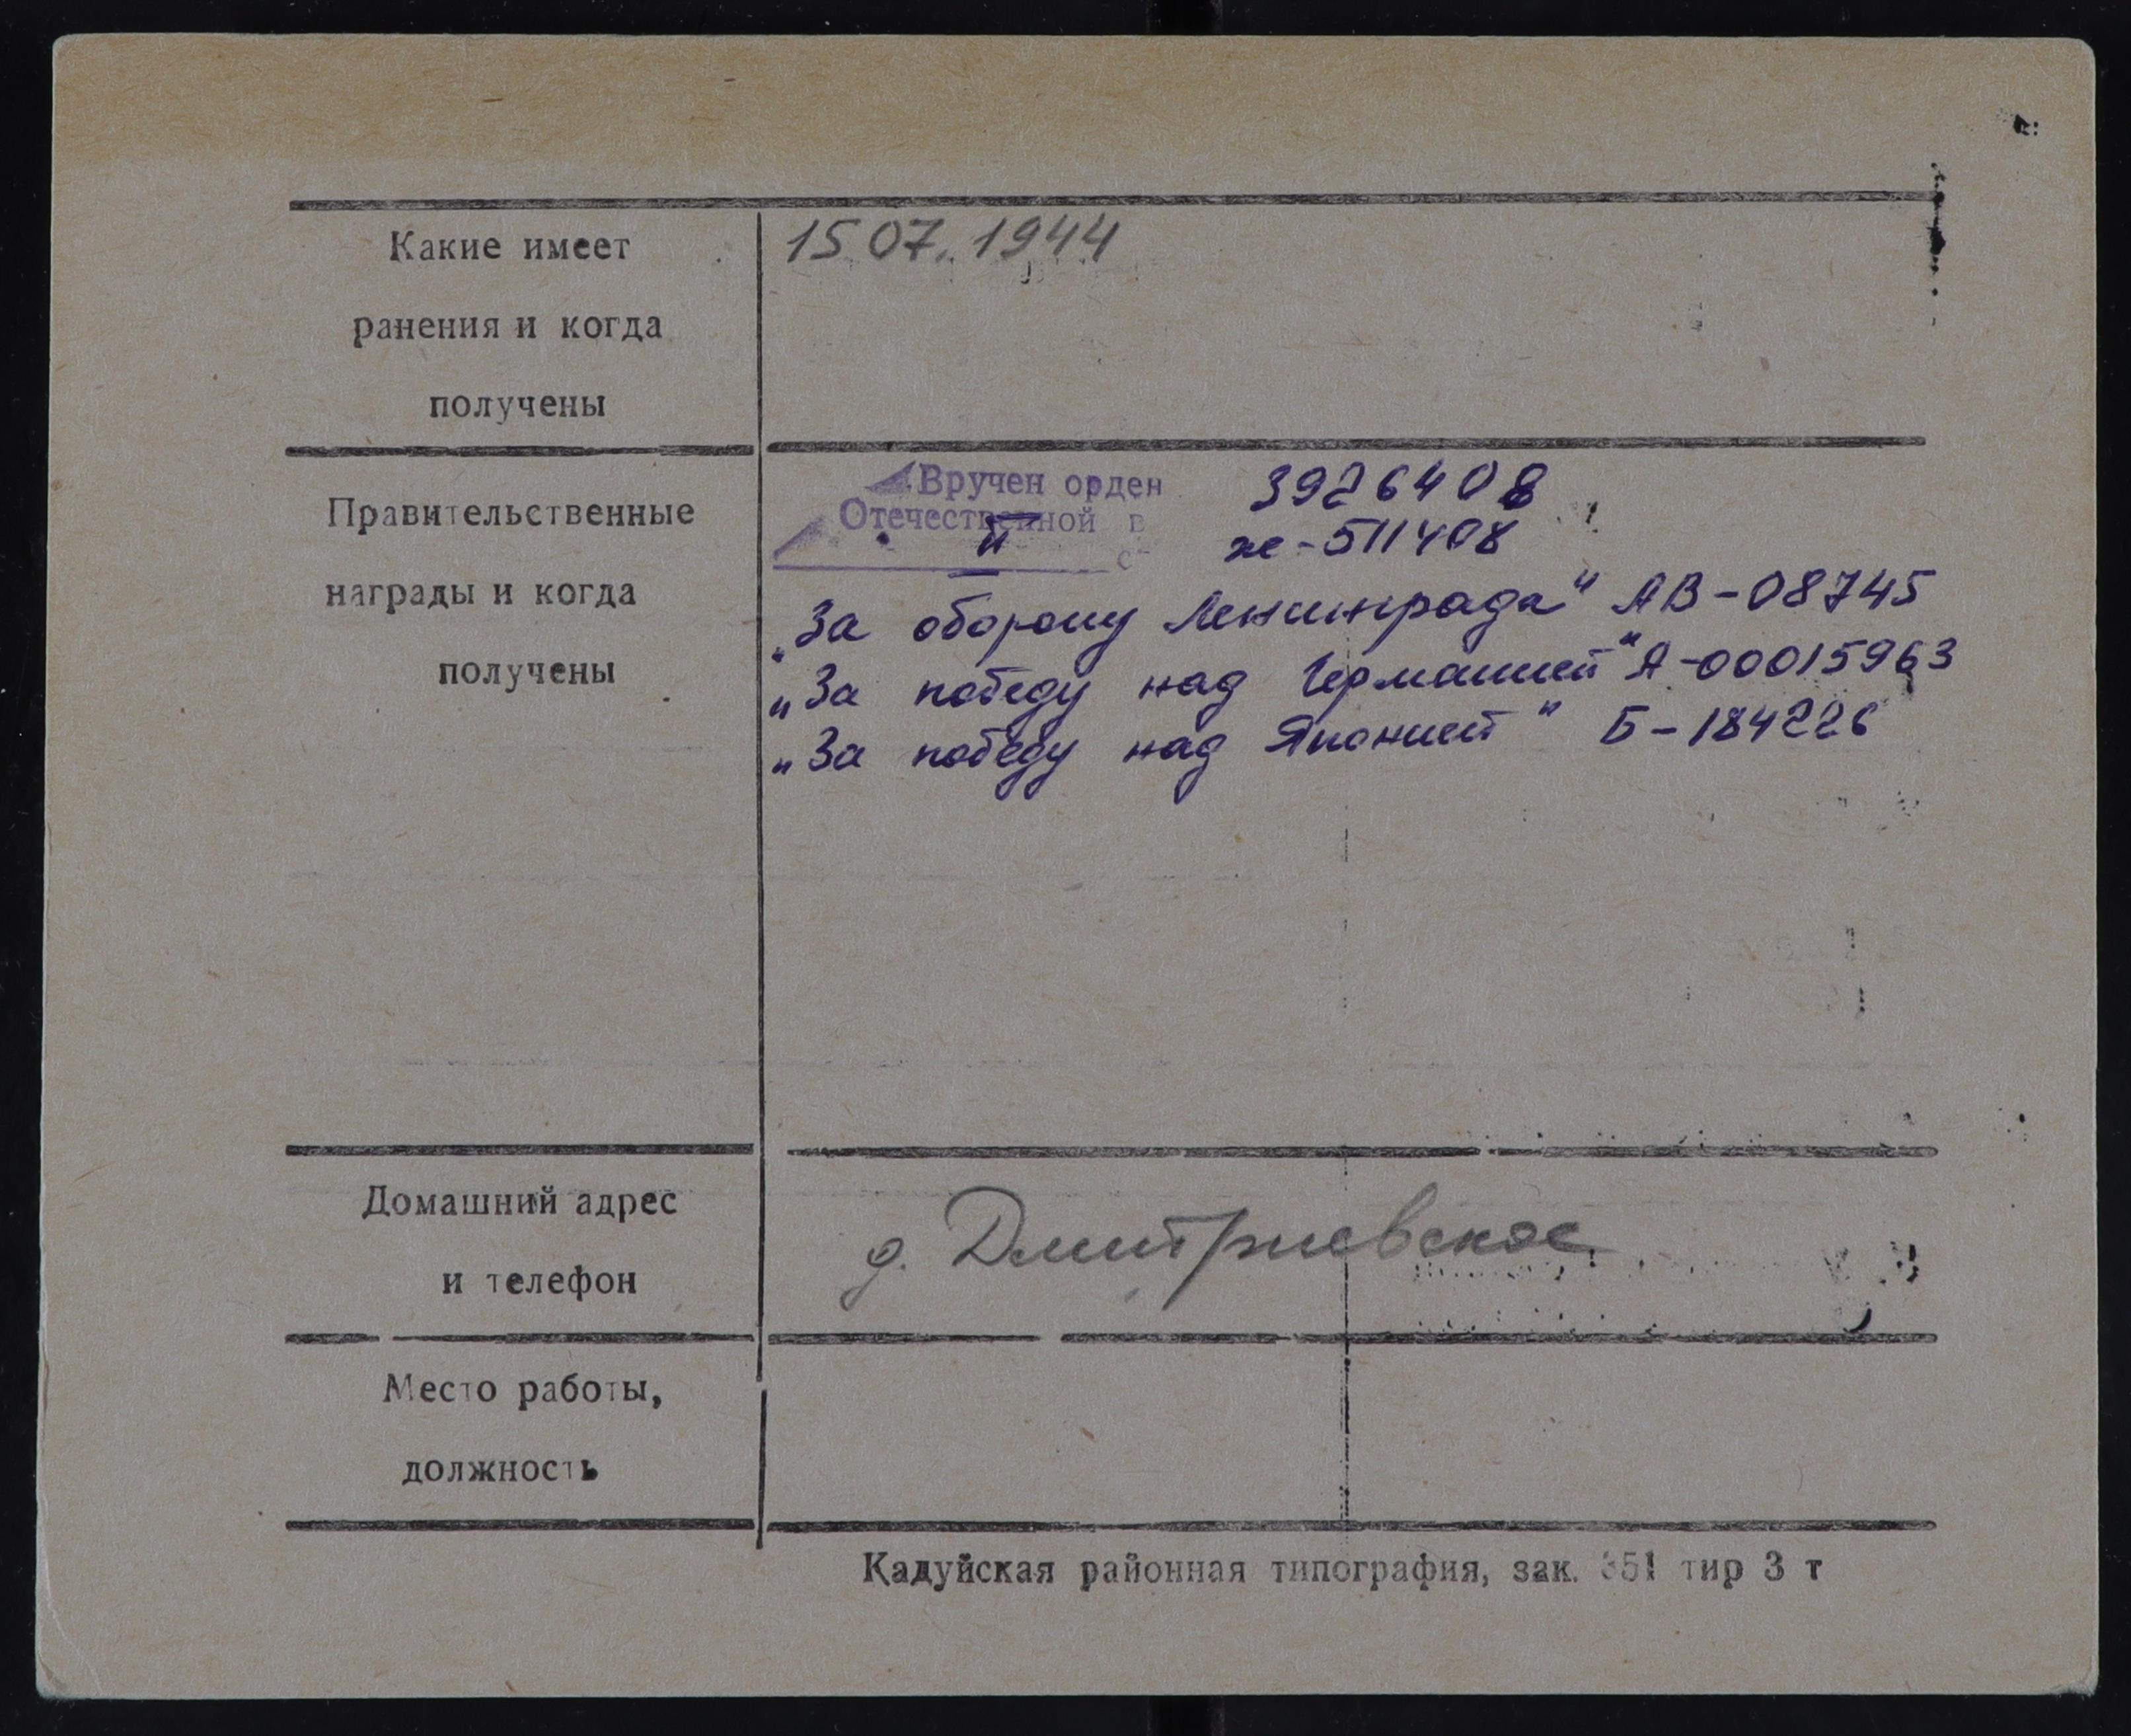 Какие имеет
ранения и когда
получены
15.07.1944
Правительственные
награды и когда
получены
Вручен орден 3926408
Отечественной в
II ж-511408
с
„За оборону Ленинграда" АВ-08745
„За победу над Германией" А-00015963
„За победу над Японией" Б-184226
Домашний адрес
и телефон
д. Дмитриевское
Место работы,
должность
Кадуйская районная типография, зак. 351 тир 3 т